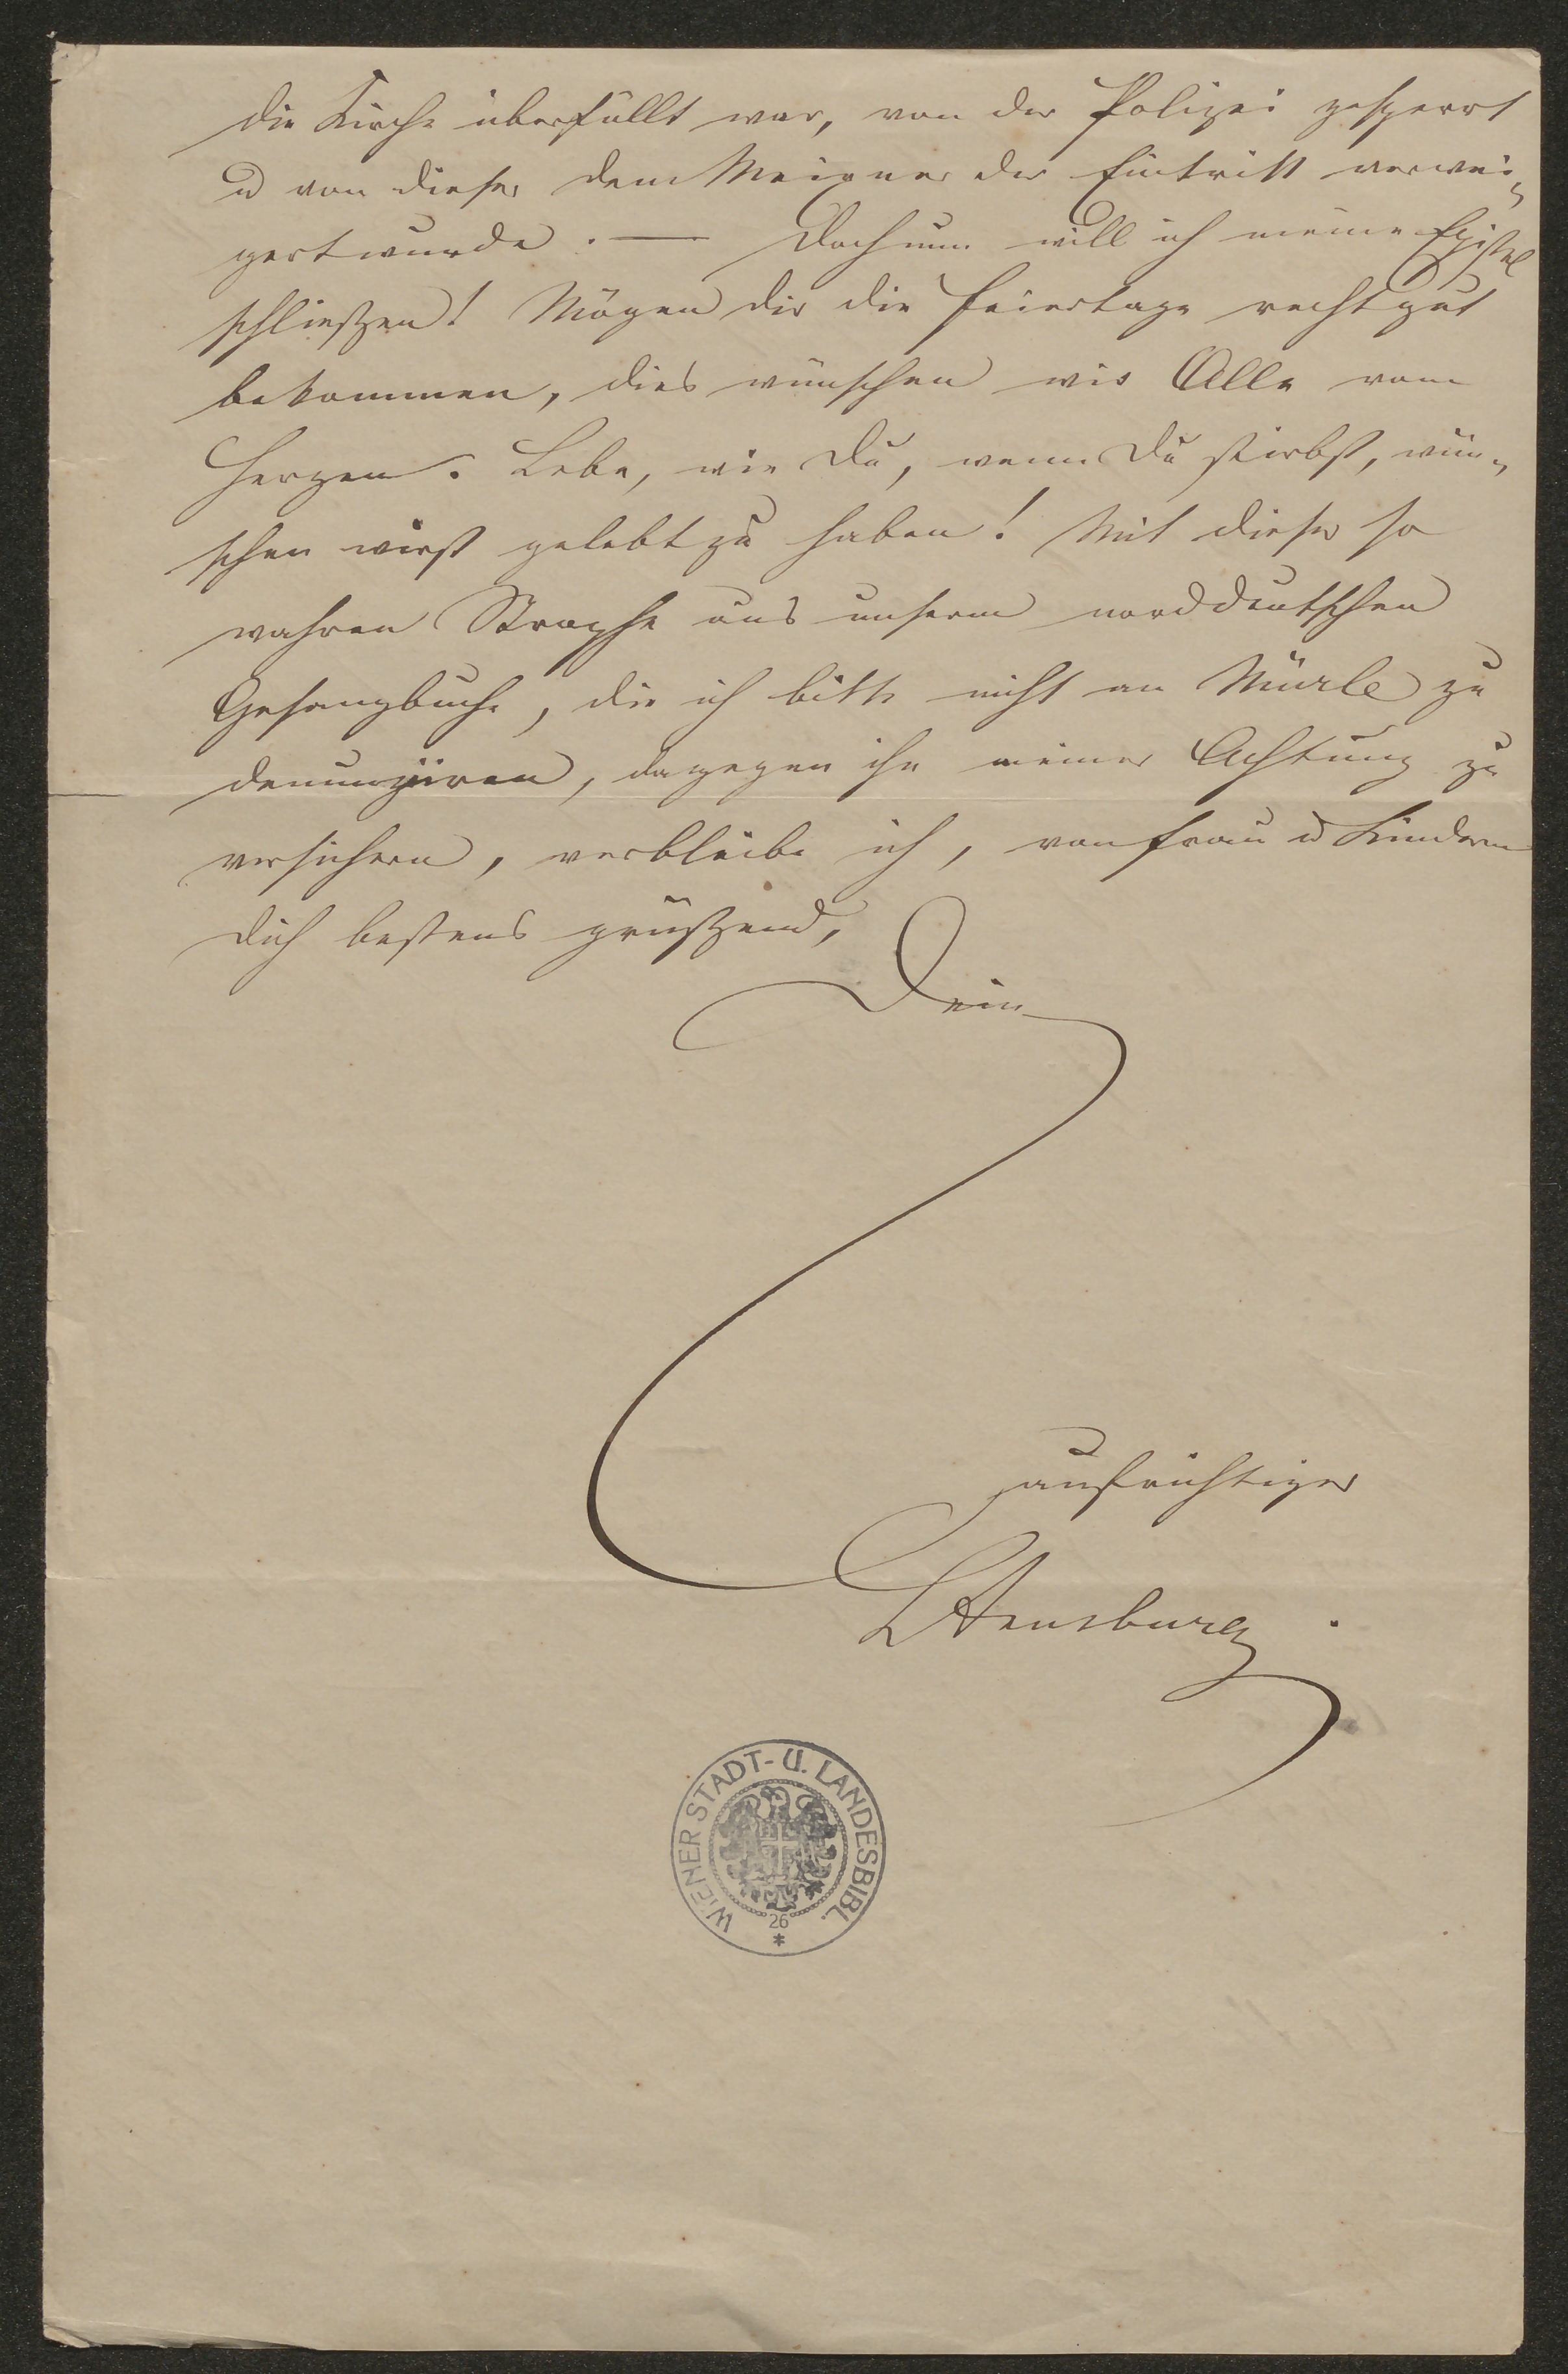 die Kirche überfüllt war, von der Polizei gesperrt
u von dieser dem Meixner der Eintritt verwei-
gert wurde. — Doch nun will ich meine Epistel
schließen! Mögen dir die Feiertage recht gut
bekommen, dies wünschen wir Alle vom
Herzen. Lebe, wie Du, wenn Du stirbst, wün-
schen wirst gelebt zu haben! Mit dieser so
wahren Strophe aus unserm norddeutschen
Gesangbuche, die ich bitte nicht an Mürle zu
denunziiren, dagegen ihn meiner Achtung zu
versichern, verbleibe ich, von Frau u Kindern
dich bestens grüßend,
Dein
aufrichtiger
LArnsburg.
WIENER STADT- U. LANDESBIBL.
26